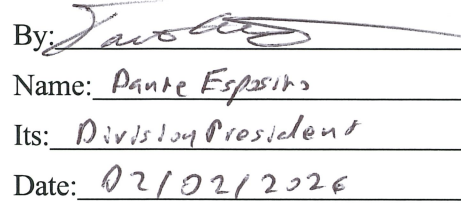 By:
Name: Dante Esposito
Its: Division President
Date: 02/02/2026